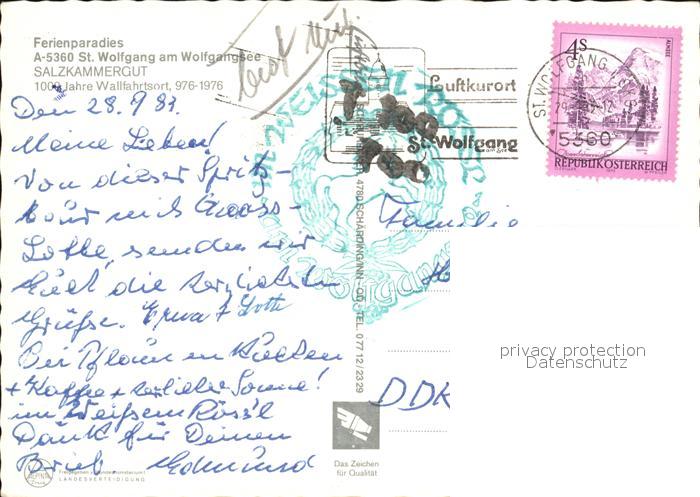 Ferienparadies
A-5360 St. Wolfgang am Wolfgangsee
SALZKAMMERGUT
1000 Jahre Wallfahrtsort, 976-1976
Den 28.9.83
Meine Lieben!
Von dieser Spritz-
tour mit Gross-
Lotte, senden wir
Euch die herzlichsten
Grüße. Erna + Lotte
Bei Pflaumenkuchen
+ Kaffee + herrlicher Sonne!
im Weißem Rössl
Dank für Deinen
Brief Edmund
Luftkurort
St. Wolfgang
ST. WOLFGANG
5360
4S
REPUBLIK ÖSTERREICH
IM WEISSEN RÖSSL
4780 SCHÄRDING/INN
TEL. 0 77 12 / 23 29
Familie
DDR
privacy protection
Datenschutz
Das Zeichen
für Qualität
LANDESVERTEIDIGUNG